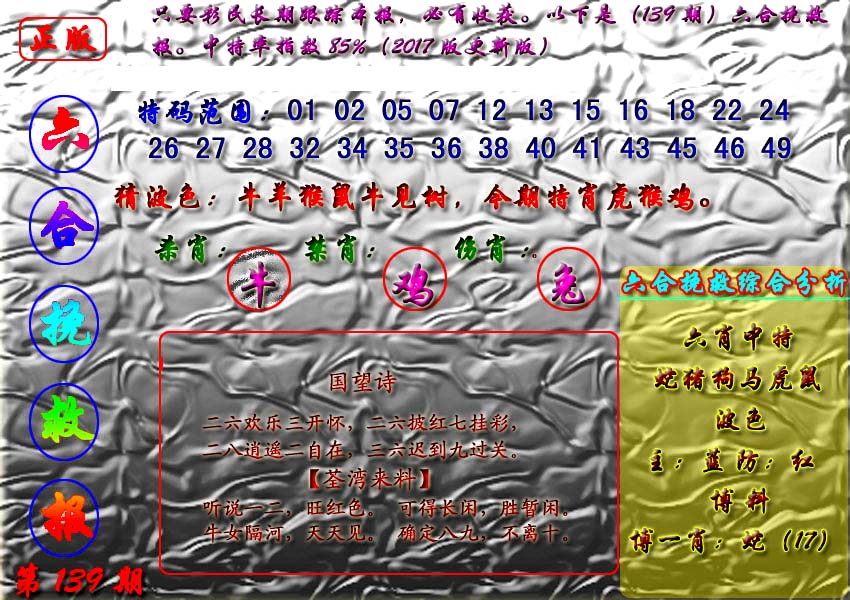 正版
只要彩民长期跟踪本报，必有收获。以下是（139期）六合挽救
报。中特率指数85%（2017版更新版）
六合挽救报
第139期
特码范围：01 02 05 07 12 13 15 16 18 22 24
26 27 28 32 34 35 36 38 40 41 43 45 46 49
猜波色：牛羊猴鼠牛见树，今期特肖虎猴鸡。
杀肖：牛 禁肖：鸡 伤肖：。兔
国望诗
二六欢乐三开怀，二六披红七挂彩，
二八逍遥二自在，三六迟到九过关。
【荃湾来料】
听说一二，旺红色。 可得长闲，胜暂闲。
牛女隔河，天天见。 确定八九，不离十。
六合挽救综合分析
六肖中特
蛇猪狗马虎鼠
波色
主：蓝防：红
博料
博一肖：蛇（17）